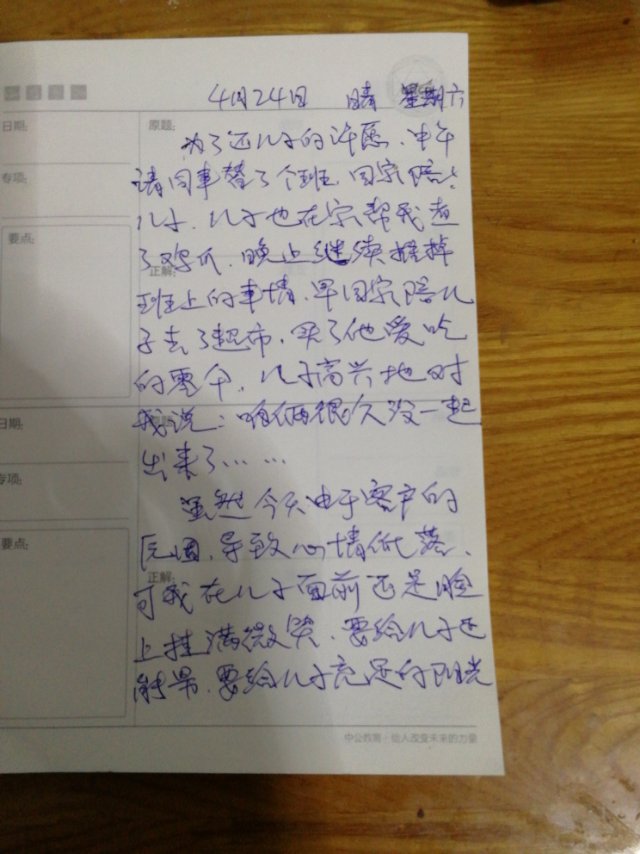 4月24日 晴 星期六
日期:
原题:
为了还儿子的许愿、中午
专项:
请同事替了个班,回家陪陪
儿子、儿子也在家帮我煮
要点:
了鸡爪、晚上继续推掉
正解:
班上的事情、早回家陪儿
子去了超市,买了他爱吃
的零食,儿子高兴地对
我说:咱俩很久没一起
日期:
出来了……
专项:
虽然今天由于客户的
要点:
原因,导致心情低落、
正解:
可我在儿子面前还是脸
上挂满微笑、要给儿子
要给儿子充足的阳光
中公教育·给人改变未来的力量